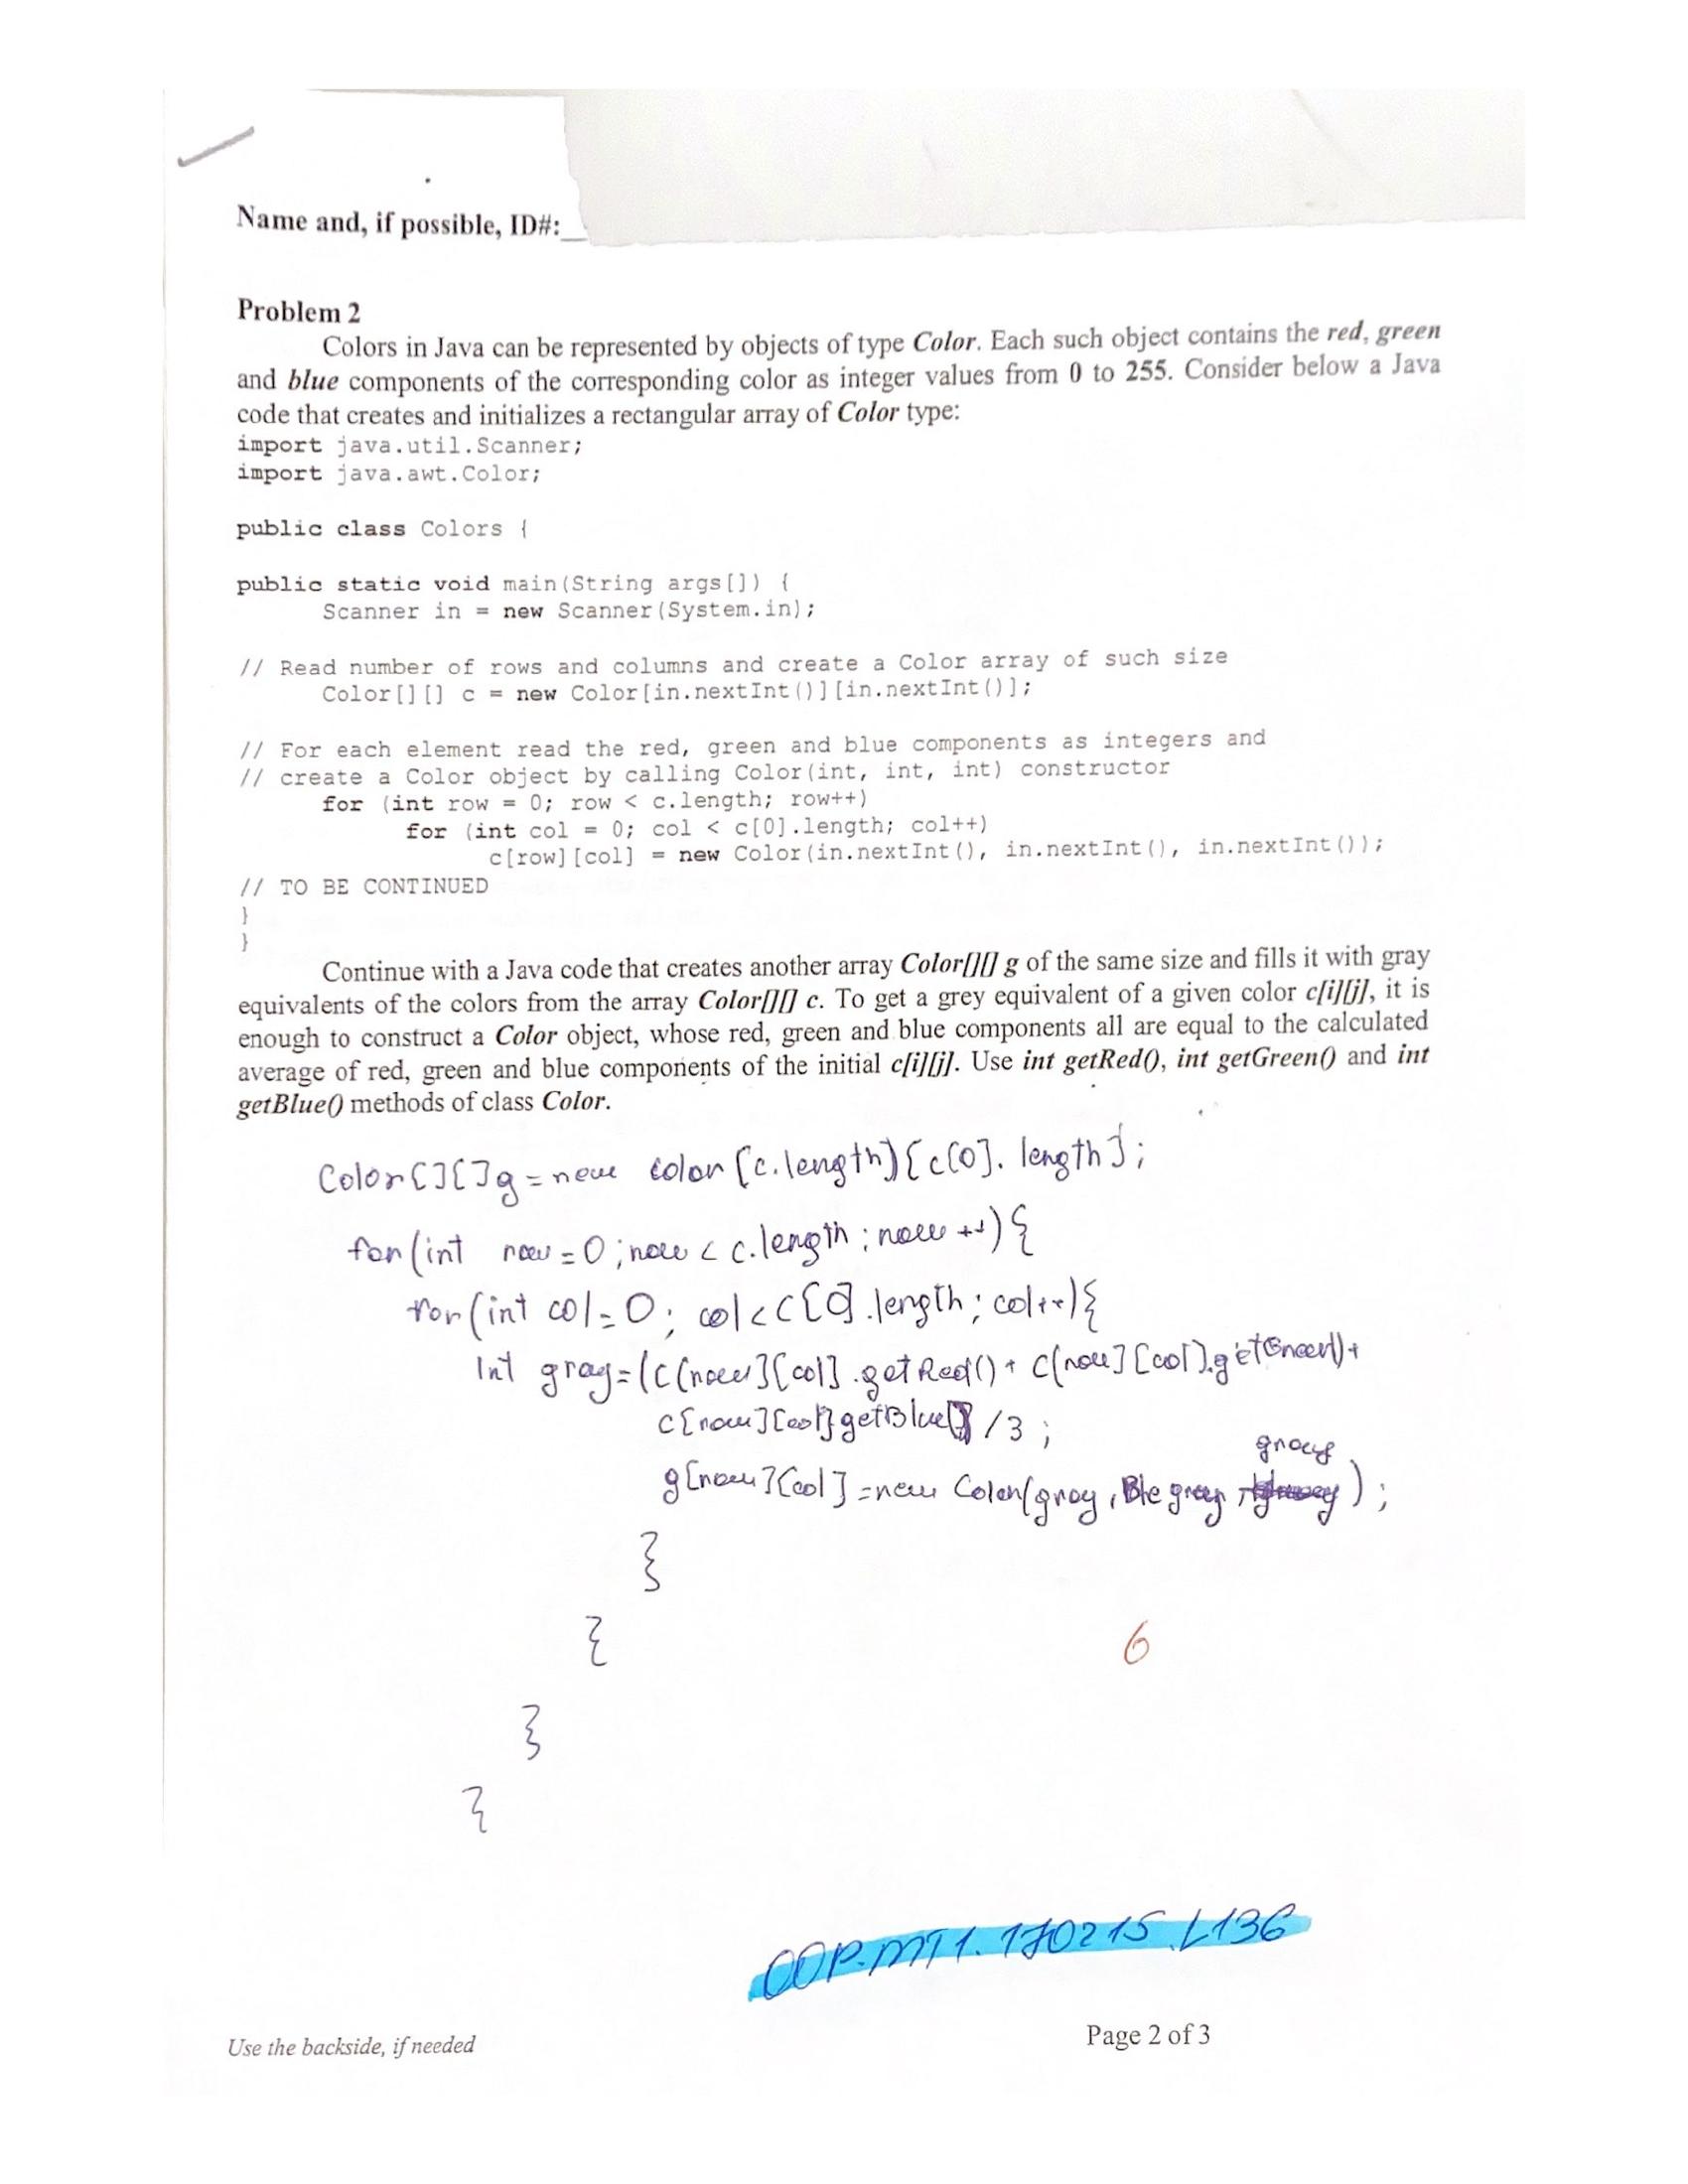 Name and, if possible, ID#:_
Problem 2
Colors in Java can be represented by objects of type Color. Each such object contains the red, green
and blue components of the corresponding color as integer values from 0 to 255. Consider below a Java
code that creates and initializes a rectangular array of Color type:
import java.util.Scanner;
import java.awt.Color;
public class Colors {
public static void main(String args[]) {
Scanner in = new Scanner(System.in);
// Read number of rows and columns and create a Color array of such size
Color[][] c = new Color[in.nextInt()][in.nextInt()];
// For each element read the red, green and blue components as integers and
// create a Color object by calling Color(int, int, int) constructor
for (int row = 0; row < c.length; row++)
for (int col = 0; col < c[0].length; col++)
c[row][col] = new Color(in.nextInt(), in.nextInt(), in.nextInt());
// TO BE CONTINUED
}
}
Continue with a Java code that creates another array Color[][] g of the same size and fills it with gray
equivalents of the colors from the array Color[][] c. To get a grey equivalent of a given color c[i][j], it is
enough to construct a Color object, whose red, green and blue components all are equal to the calculated
average of red, green and blue components of the initial c[i][j]. Use int getRed(), int getGreen() and int
getBlue() methods of class Color.
Color[][]g = new color [c.length][c[0].length];
for(int row = 0; row < c.length; row ++) {
for(int col = 0; col < c[0].length; col++){
Int gray = (c[row][col].getRed() + c[row][col].getGreen()+
c[row][col]getBlue()) /3 ;
gray
g[row][col] = new Color(gray, gray, );
}
{
6
}
{
OOP.MT1.170215.L136
Use the backside, if needed
Page 2 of 3